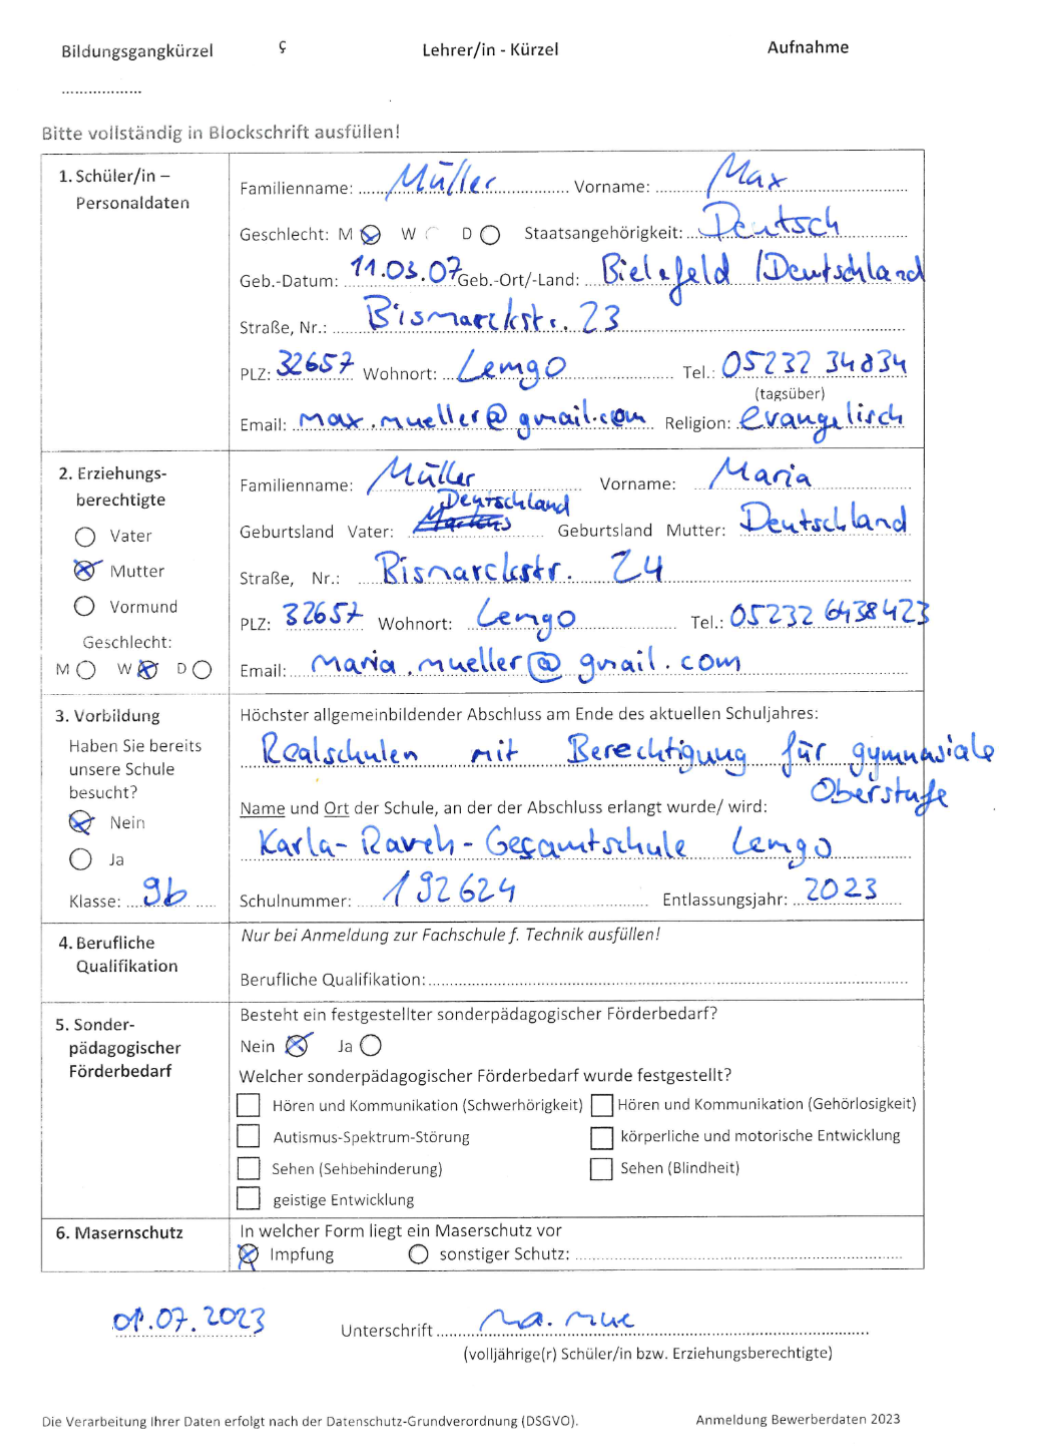 Bildungsgangkürzel ç Lehrer/in - Kürzel Aufnahme
..................
Bitte vollständig in Blockschrift ausfüllen!
1. Schüler/in – Personaldaten
Familienname: Müller Vorname: Max
Geschlecht: M W D Staatsangehörigkeit: Deutsch
Geb.-Datum: 11.03.07 Geb.-Ort/-Land: Bielefeld / Deutschland
Straße, Nr.: Bismarckstr. 23
PLZ: 32657 Wohnort: Lemgo Tel.: 05232 34834
(tagsüber)
Email: max.mueller@gmail.com Religion: evangelisch
2. Erziehungs-
berechtigte
Vater
Mutter
Vormund
Geschlecht:
M W D
Familienname: Müller Vorname: Maria
Geburtsland Vater: Deutschland Geburtsland Mutter: Deutschland
Straße, Nr.: Bismarckstr. 24
PLZ: 32657 Wohnort: Lemgo Tel.: 05232 6438423
Email: maria.mueller@gmail.com
3. Vorbildung
Haben Sie bereits
unsere Schule
besucht?
Nein
Ja
Klasse: 9b
Höchster allgemeinbildender Abschluss am Ende des aktuellen Schuljahres:
Realschulen mit Berechtigung für gymnasiale
Oberstufe
Name und Ort der Schule, an der der Abschluss erlangt wurde/ wird:
Karla-Raveh-Gesamtschule Lemgo
Schulnummer: 192624 Entlassungsjahr: 2023
4. Berufliche
Qualifikation
Nur bei Anmeldung zur Fachschule f. Technik ausfüllen!
Berufliche Qualifikation:
5. Sonder-
pädagogischer
Förderbedarf
Besteht ein festgestellter sonderpädagogischer Förderbedarf?
Nein Ja
Welcher sonderpädagogischer Förderbedarf wurde festgestellt?
Hören und Kommunikation (Schwerhörigkeit) Hören und Kommunikation (Gehörlosigkeit)
Autismus-Spektrum-Störung körperliche und motorische Entwicklung
Sehen (Sehbehinderung) Sehen (Blindheit)
geistige Entwicklung
6. Masernschutz
In welcher Form liegt ein Maserschutz vor
Impfung sonstiger Schutz:
01.07.2023 Unterschrift Ma. Mue
(volljährige(r) Schüler/in bzw. Erziehungsberechtigte)
Die Verarbeitung Ihrer Daten erfolgt nach der Datenschutz-Grundverordnung (DSGVO). Anmeldung Bewerberdaten 2023